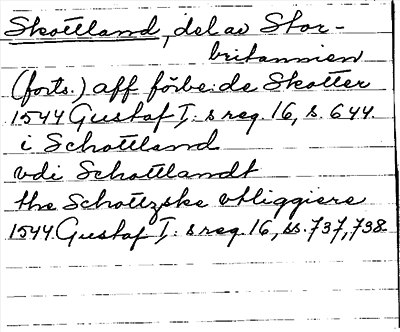 Skottland, del av Stor-
britannien
(forts.) aff förbe:de Skotter
1544 Gustaf I: s reg. 16, s. 644.
i Schottland
vdi Schottlandt
the Schottzske vtliggiere
1544 Gustaf I: s reg. 16, ss. 737, 738.